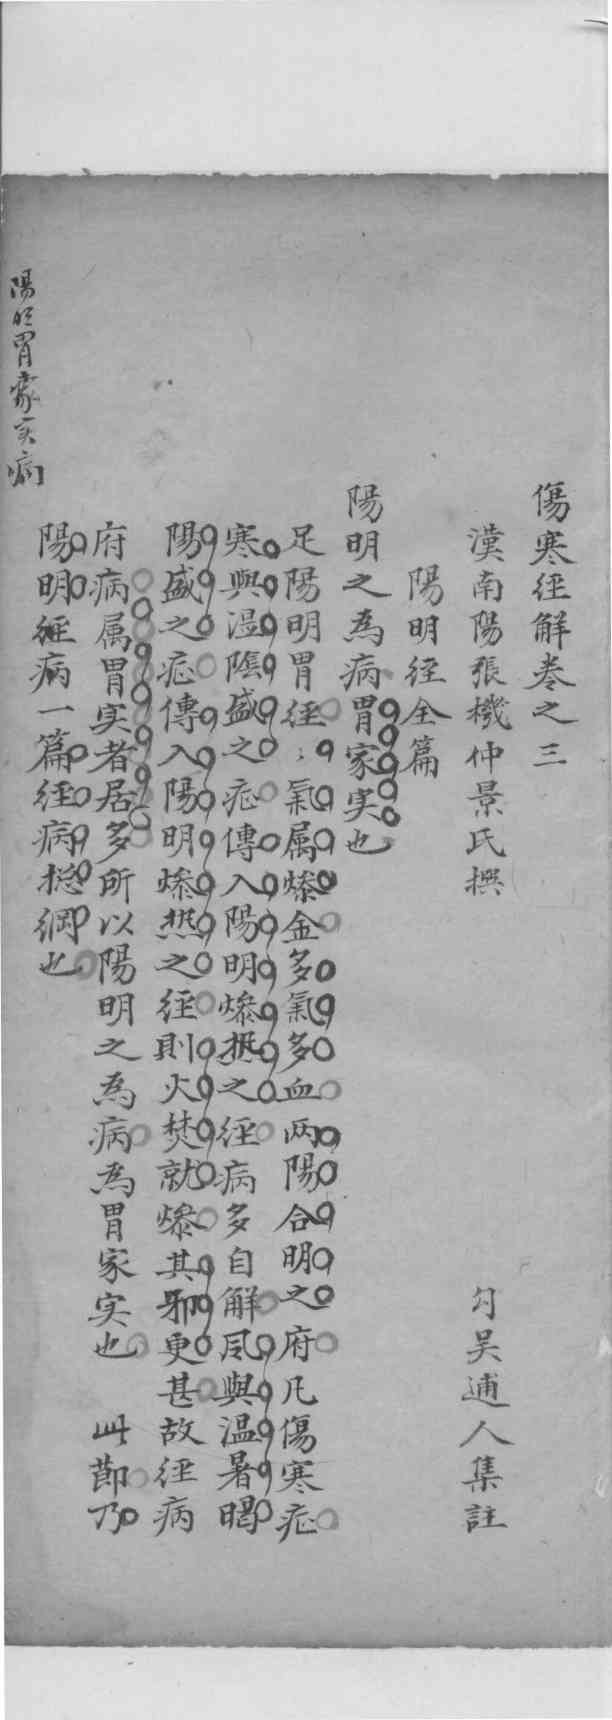 傷寒经解卷之三
漢南陽張機仲景氏撰　勾吴逋人集註
陽明经全篇
陽明之為病胃家实也
足陽明胃经；氣属燥金多氣多血两陽合明之府凡傷寒症
寒與湿陰盛之症傳入陽明燥热之经病多自解风與温暑暍
陽盛之症傳入陽明燥热之经則火焚就燥其邪更甚故径病
府病属胃实者居多所以陽明之為病為胃家实也　此節乃
陽明经病一篇经病揔綱也
陽明胃家实病